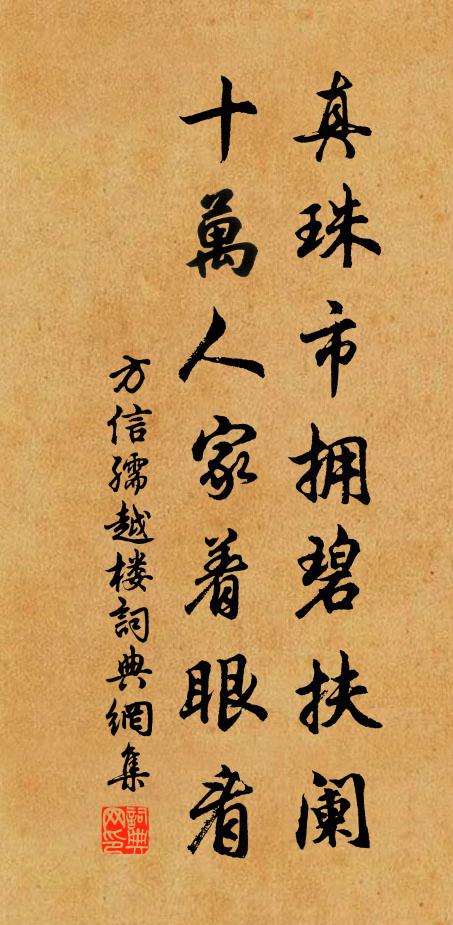 真珠市拥碧扶阑
十萬人家着眼看
方信孺越楼詞典網集
詞典網印